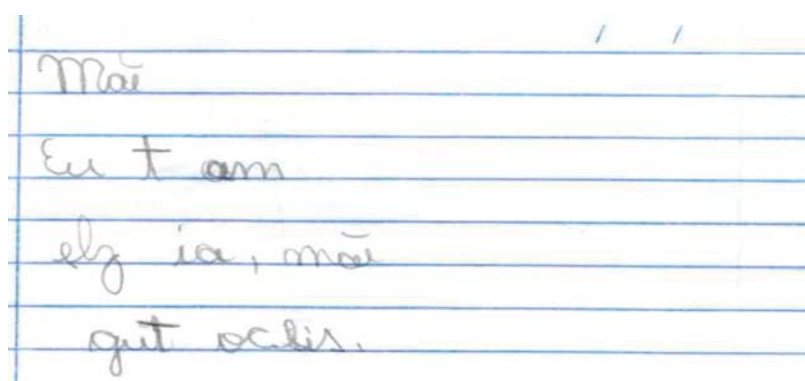 Mãi
Eu t am
elz ia, mãi
gut oclis.